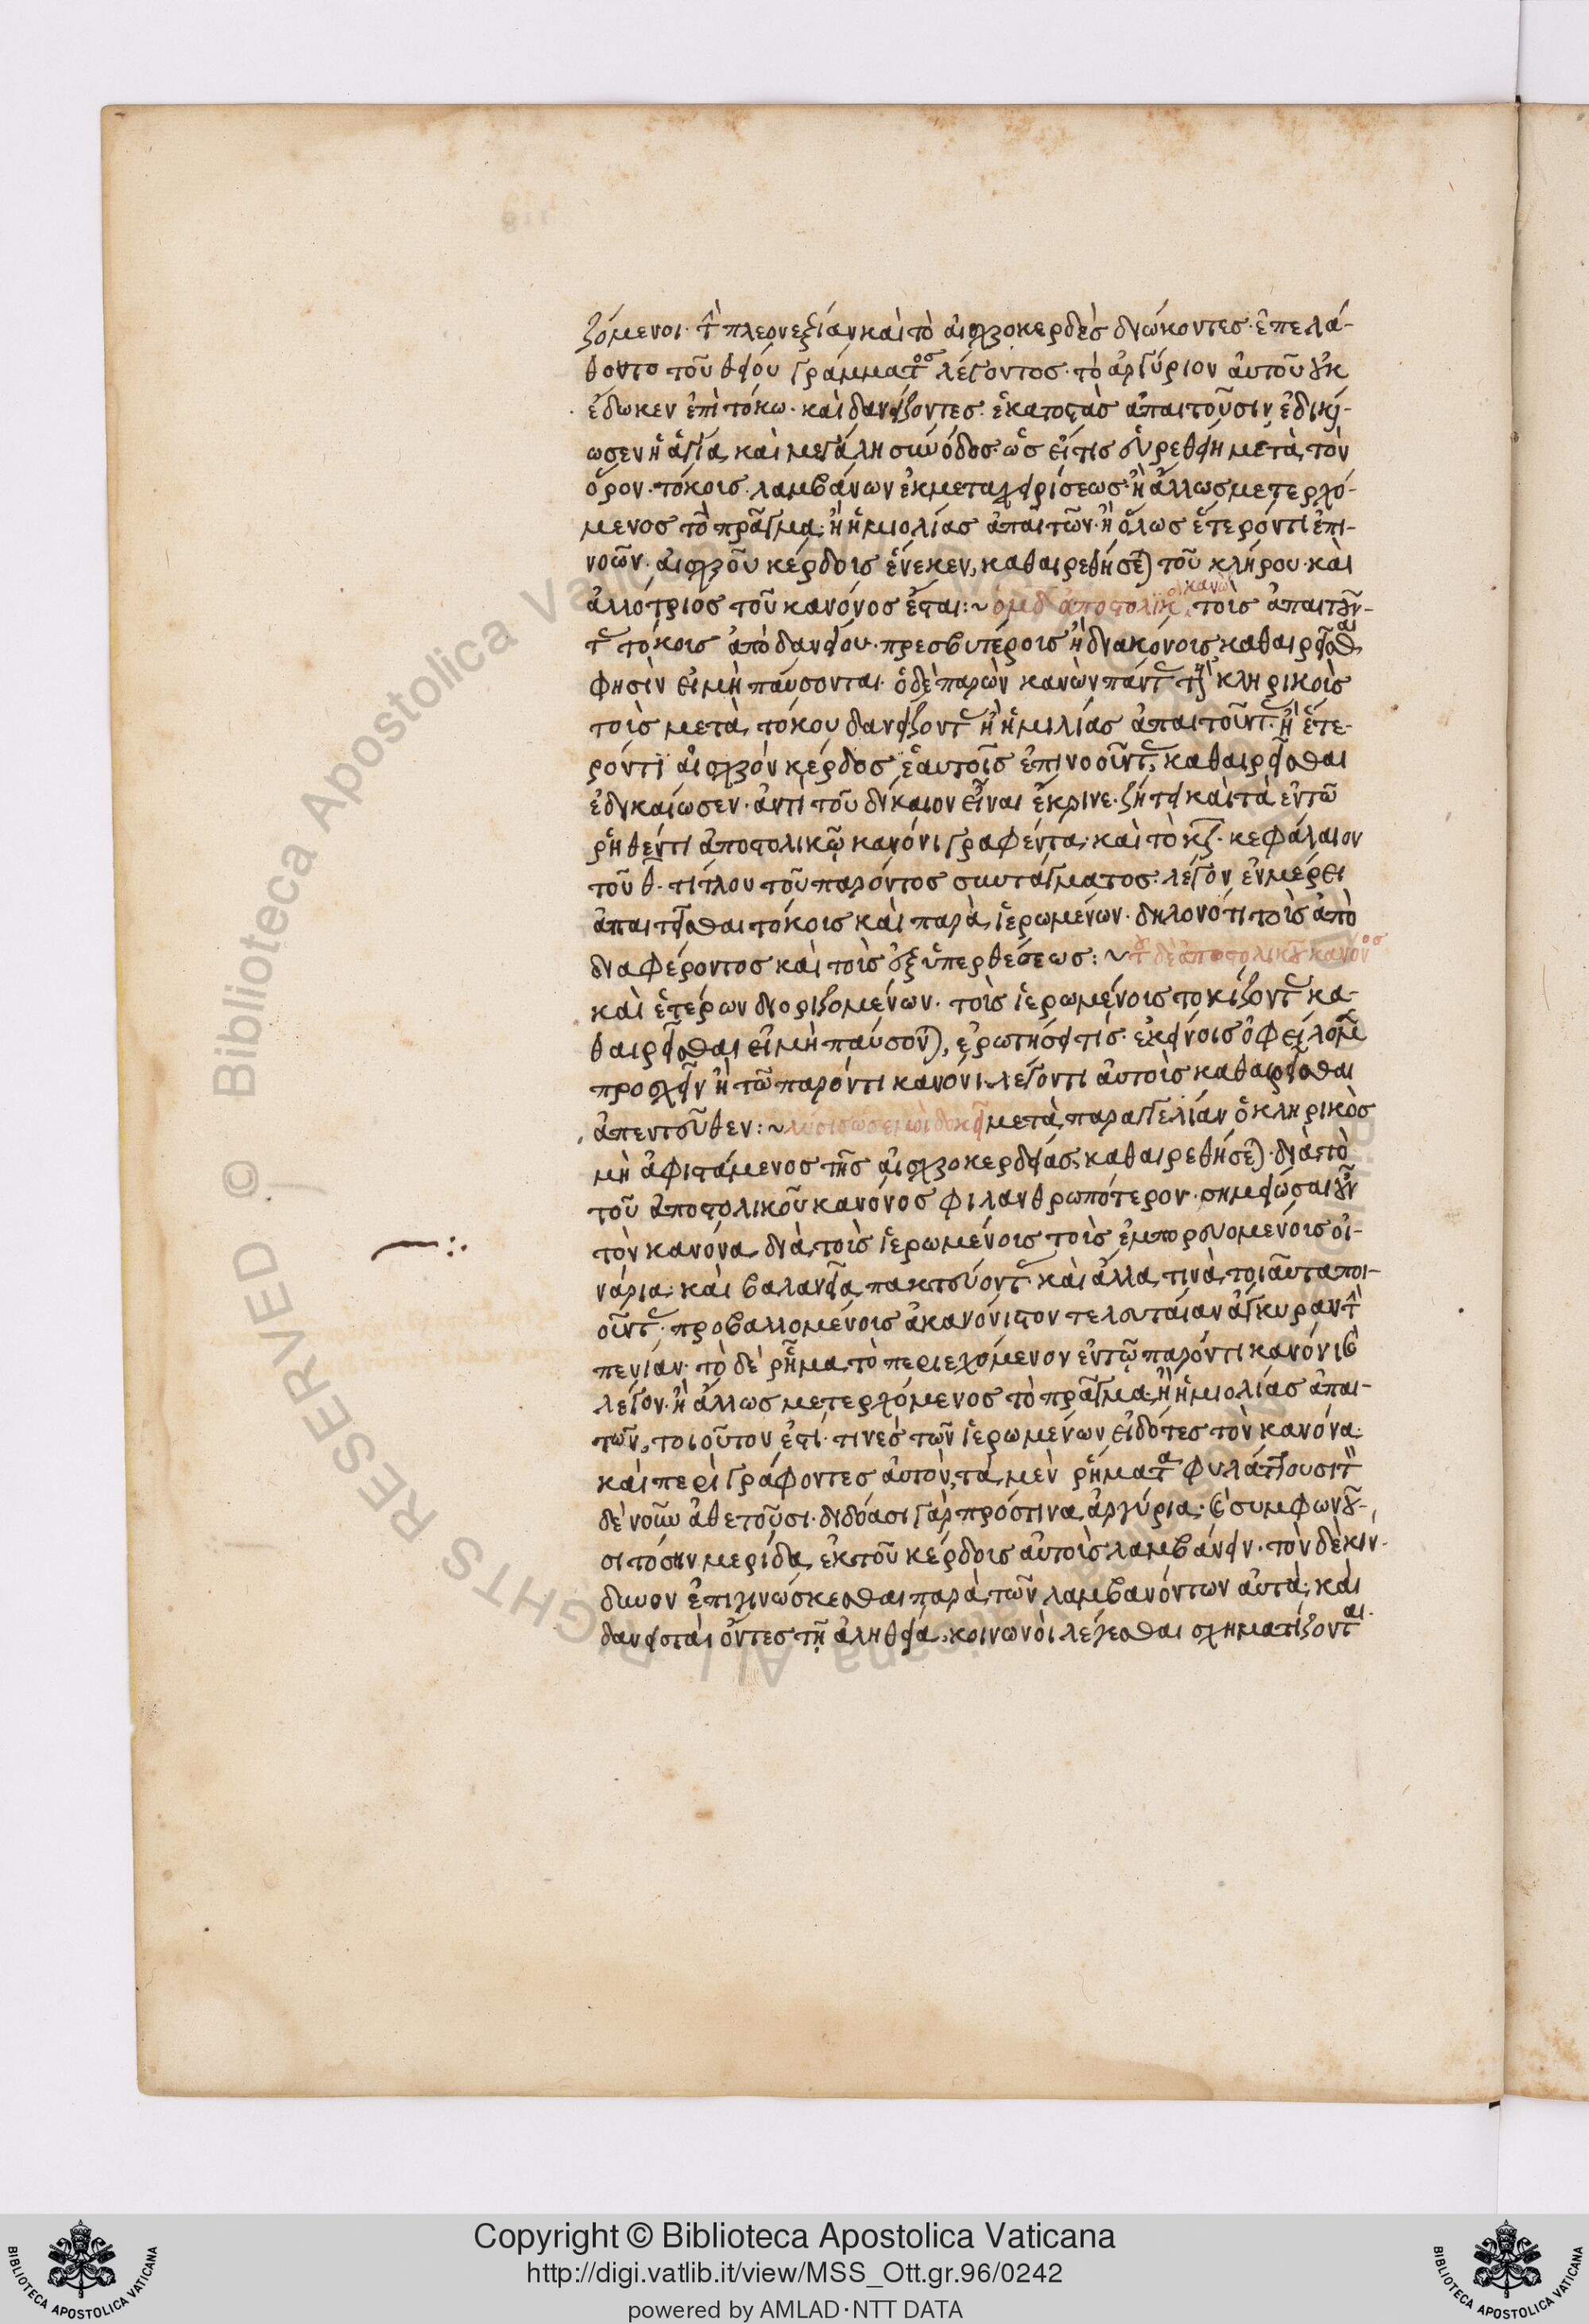 ζόμενοι· τὴν πλεονεξίαν καὶ τὸ αἰσχροκερδὲς διώκοντες· ἐπελά-
θοντο τοῦ θείου γράμματος λέγοντος· τὸ ἀργύριον αὐτοῦ οὐκ
ἔδωκεν ἐπὶ τόκω· καὶ δανείζοντες· ἑκατοστὰς ἀπαιτοῦσιν, ἐδικαί-
ωσεν ἡ ἁγία καὶ μεγάλη σύνοδος· ὡς εἴ τις εὑρεθείη μετὰ τὸν
ὅρον· τόκους λαμβάνων ἐκ μεταχειρίσεως· ἢ ἄλλως μετερχό-
μενος τὸ πρᾶγμα· ἢ ἡμιολίας ἀπαιτῶν· ἢ ὅλως ἕτερόν τι ἐπι-
νοῶν· αἰσχροῦ κέρδους ἕνεκεν, καθαιρεθήσεται τοῦ κλήρου· καὶ
ἀλλότριος τοῦ κανόνος ἔσται:~ ὁ μδ ἀποστολικὸς κανὼν τοὺς ἀπαιτοῦν-
τας τόκους ἀπὸ δανείου· πρεσβυτέρους ἢ διακόνους, καθαιρεῖσθαι
φησὶν εἰ μὴ παύσονται· ὁ δὲ παρὼν κανὼν πάντας τοὺς κληρικοὺς
τοὺς μετὰ τόκου δανείζοντας ἢ ἡμιλίας ἀπαιτοῦντας· ἢ ἕτε-
ρόν τι αἰσχρὸν κέρδος ἑαυτοῖς ἐπινοοῦντας, καθαιρεῖσθαι
ἐδικαίωσεν· ἀντὶ τοῦ δίκαιον εἶναι ἔκρινε· ζήτει καὶ τὰ ἐν τῶ
ῥηθέντι ἀποστολικῷ κανόνι γραφέντα· καὶ τὸ κζ· κεφάλαιον
τοῦ θ· τίτλου τοῦ παρόντος συντάγματος· λέγον, ἐν μέρει
ἀπαιτεῖσθαι τόκους καὶ παρὰ ἱερωμένων· δηλονότι τοὺς ἀπὸ
διαφέροντος καὶ τοὺς ἐξ ὑπερθέσεως:~ τοῦ δὲ ἀποστολικοῦ κανόνος
καὶ ἑτέρων διοριζομένων· τοὺς ἱερωμένους τοκίζοντας κα-
θαιρεῖσθαι εἰ μὴ παύσονται, ἐρωτήσει τις· ἐκείνοις ὀφείλομεν
προσχεῖν ἢ τῶ παρόντι κανόνι λέγοντι αὐτοὺς καθαιρεῖσθαι
ἀπεντεῦθεν:~ λύσις ὡς ἐμοὶ δοκεῖ μετὰ παραγγελίαν ὁ κληρικὸς
μὴ ἀφιστάμενος τῆς αἰσχροκερδείας, καθαιρεθήσεται· διὰ τὸ
τοῦ ἀποστολικοῦ κανόνος φιλανθρωπότερον· σημείωσαι οὖν
τὸν κανόνα διὰ τοὺς ἱερωμένους τοὺς ἐμπορευομένους οἰ-
νάρια· καὶ βαλανεῖα πακτεύοντας καὶ ἄλλα τινὰ τοιαῦτα ποι-
οῦντας· προβαλλομένους ἀκανόνιστον τελευταίαν ἄγκυραν τὴν
πενίαν· τὸ δὲ ῥῆμα τὸ περιεχόμενον ἐν τῷ παρόντι κανόνι τὸ
λέγον· ἢ ἄλλως μετερχόμενος τὸ πρᾶγμα, ἢ ἡμιολίας ἀπαι-
τῶν, τοιοῦτον ἐστί· τινὲς τῶν ἱερωμένων, εἰδότες τὸν κανόνα·
καὶ περιγράφοντες αὐτὸν, τὰ μὲν ῥήματα φυλάττουσι τὸν
δὲ νοῦν ἀθετοῦσι· διδόασι γὰρ πρός τινα ἀργύρια· καὶ συμφωνοῦ-
σι τόσην μερίδα ἐκ τοῦ κέρδους αὐτοὺς λαμβάνειν· τὸν δὲ κίν-
δυνον ἐπιγινώσκεσθαι παρὰ τῶν λαμβανόντων αὐτὰ· καὶ
δανεισταὶ ὄντες τῇ ἀληθεία, κοινωνοὶ λέγεσθαι σχηματίζονται·
Copyright © Biblioteca Apostolica Vaticana
http://digi.vatlib.it/view/MSS_Ott.gr.96/0242
powered by AMLAD·NTT DATA